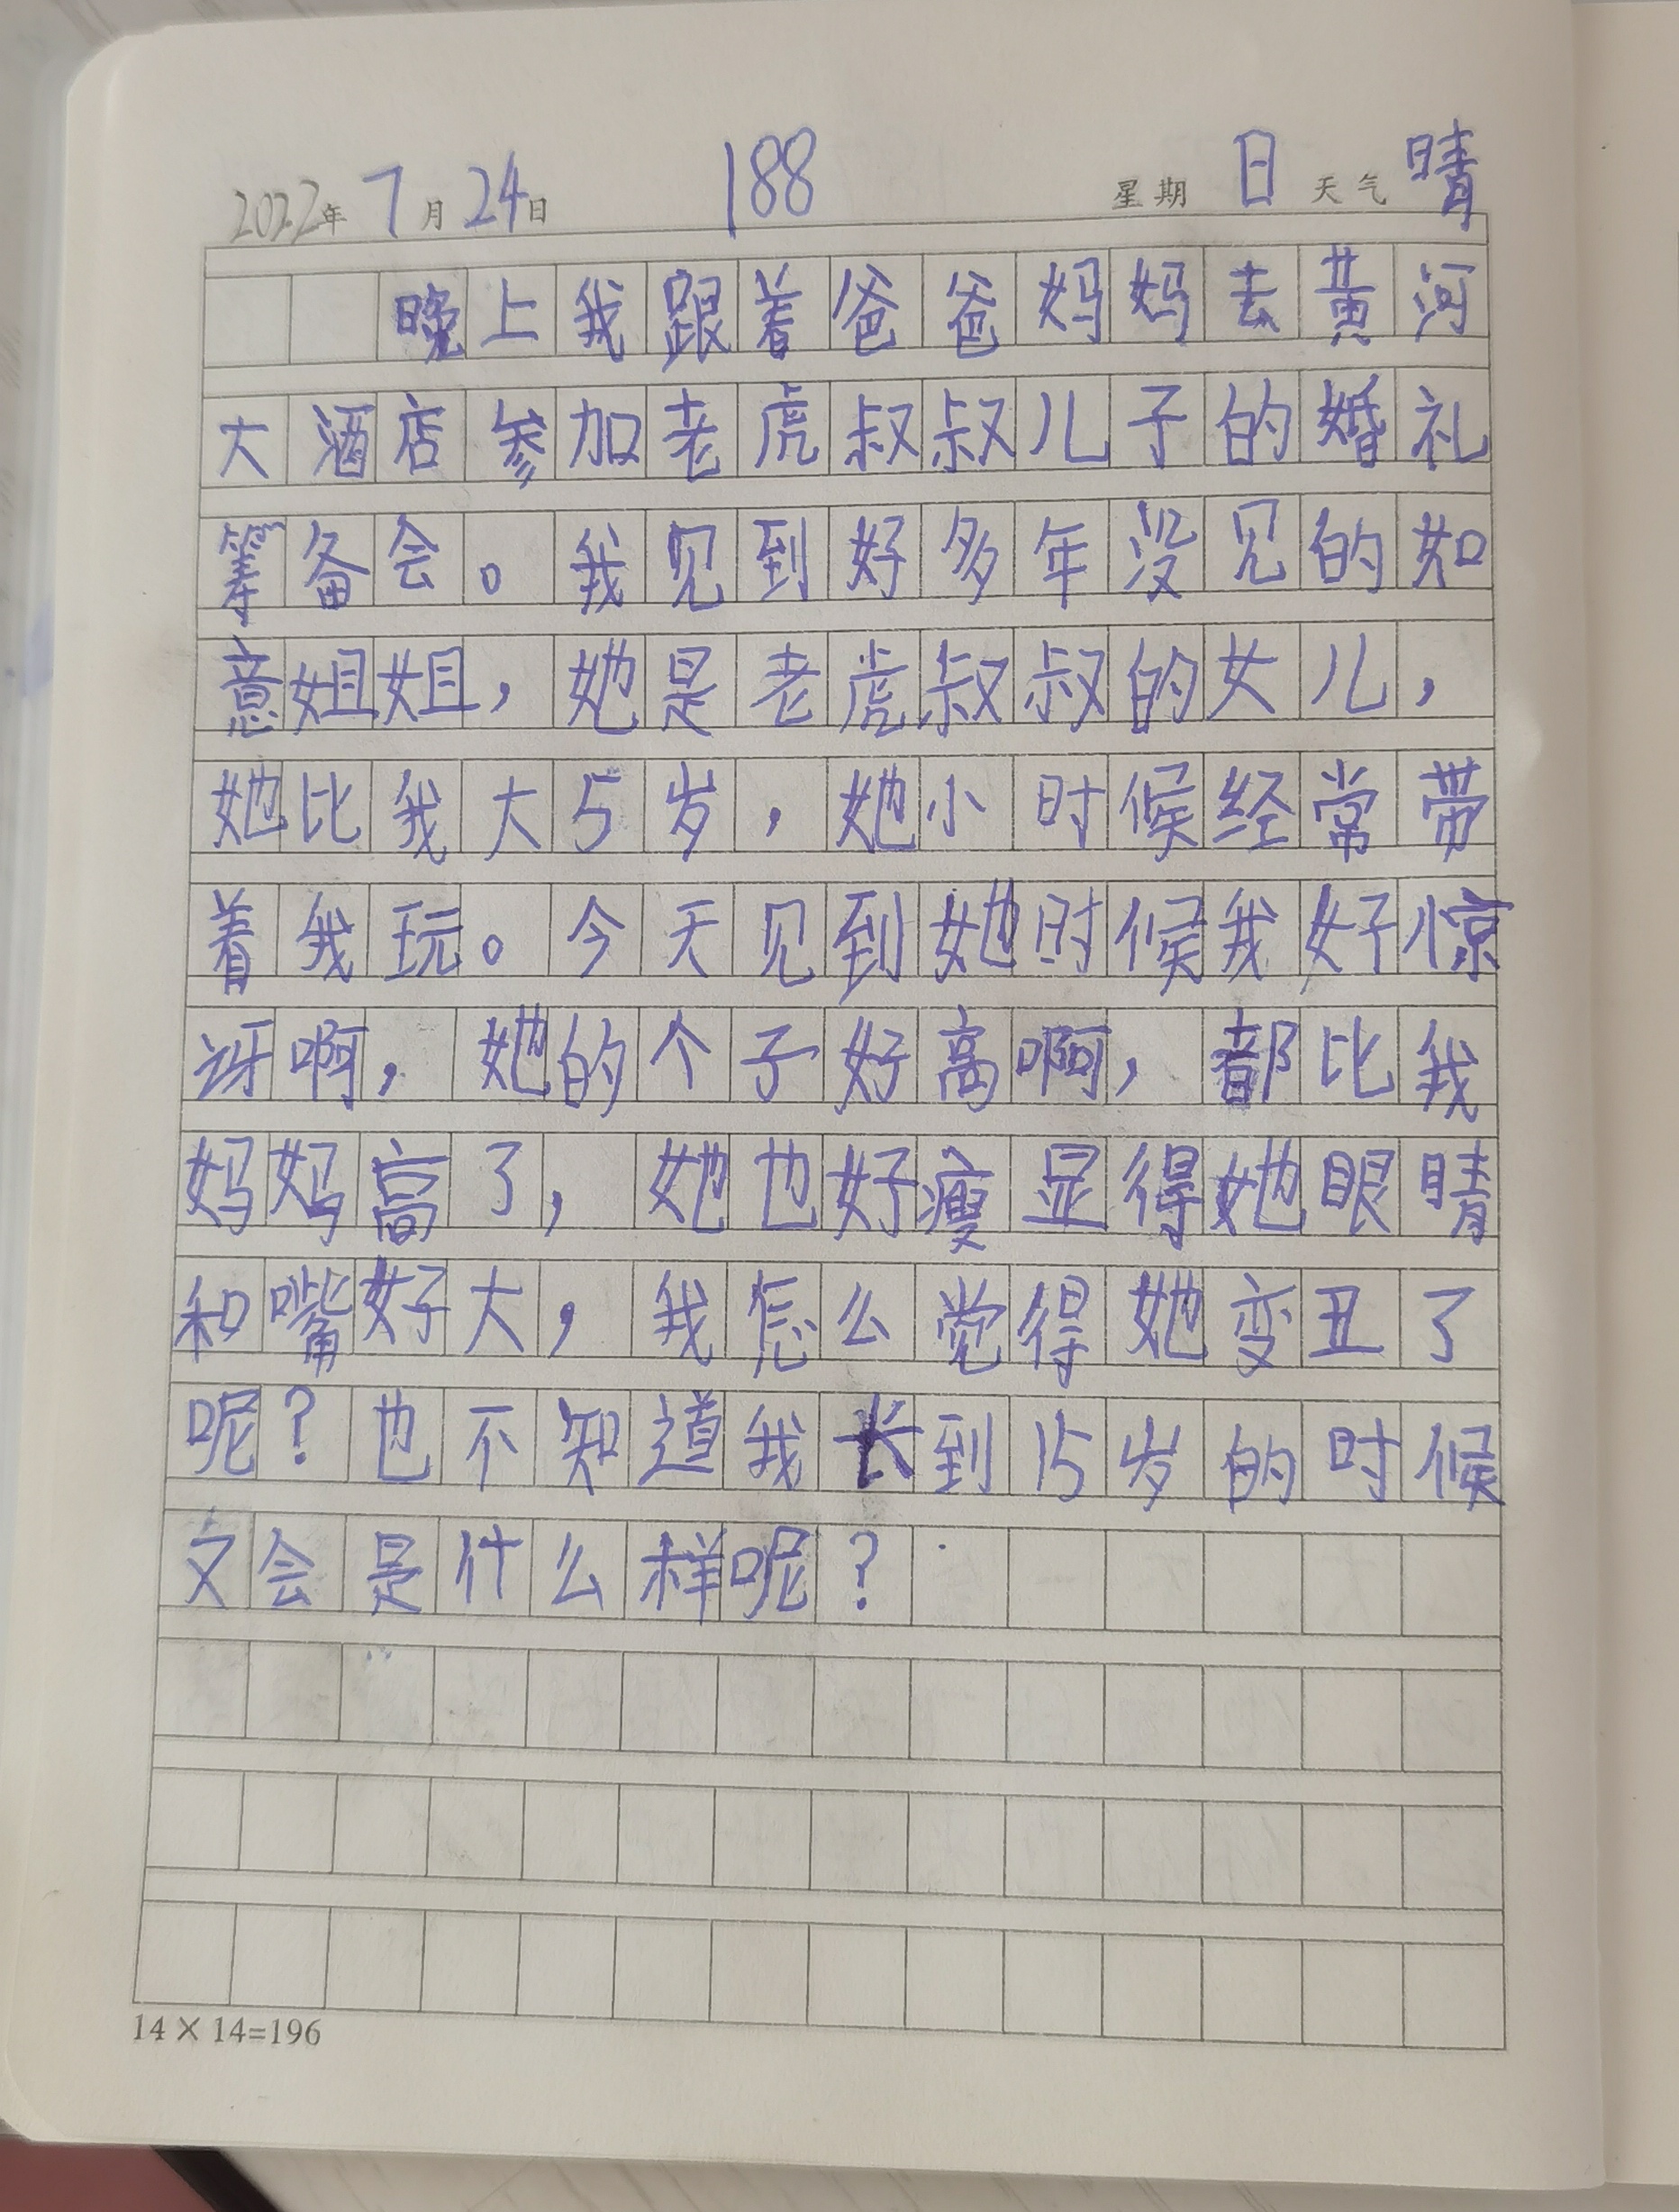 2022年7月24日 188 星期日 天气晴
晚上我跟着爸爸妈妈去黄河
大酒店参加老虎叔叔儿子的婚礼
筹备会。我见到好多年没见的如
意姐姐，她是老虎叔叔的女儿，
她比我大5岁，她小时候经常带
着我玩。今天见到她时候我好惊
讶啊，她的个子好高啊，都比我
妈妈高了，她也好瘦显得她眼睛
和嘴好大，我怎么觉得她变丑了
呢？也不知道我长到15岁的时候
又会是什么样呢？
14×14=196